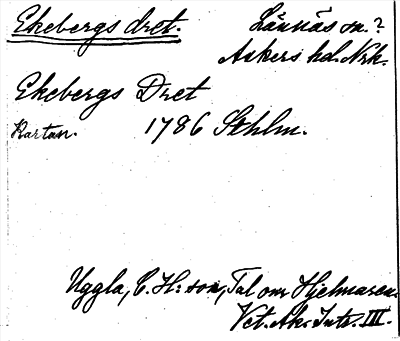 Ekebergs dret. Lännäs sn.?
Askers hd. Nrk.
Ekebergs Dret
Kartan. 1786 Sthlm.
Uggla, C. H:son, Tal om Hjelmaren.
Vet. Ak. Intr. III.